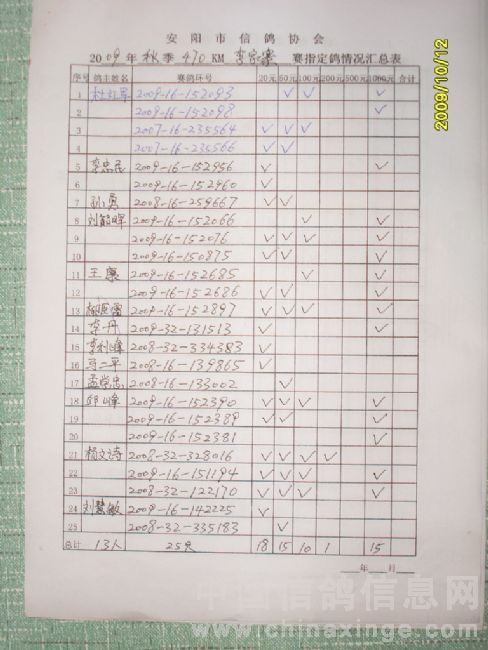 安阳市信鸽协会
2009年秋季470KM 李家寨 赛指定鸽情况汇总表
序号 鸽主姓名 赛鸽环号 20元 50元 100元 200元 500元 1000元 合计
1 杜红军 2009-16-152093 ✓ ✓ ✓
2 2009-16-152098 ✓
3 2007-16-235564 ✓ ✓ ✓
4 2007-16-235566 ✓ ✓
5 李忠民 2009-16-152956 ✓ ✓
6 2009-16-152960 ✓
7 孙勇 2008-16-259667 ✓ ✓
8 刘韶晖 2009-16-152066 ✓ ✓
9 2009-16-152076 ✓ ✓ ✓ ✓
10 2009-16-150875 ✓ ✓ ✓
11 王康 2009-16-152685 ✓ ✓
12 2009-16-152686 ✓ ✓ ✓
13 2009-16-152897 ✓ ✓ ✓ ✓
14 李丹 2009-32-131513 ✓ ✓
15 李利峰 2008-32-334383 ✓
16 马二平 2008-16-139865 ✓
17 孟学忠 2008-16-133002 ✓
18 邱峰 2009-16-152390 ✓ ✓ ✓ ✓
19 2009-16-152389 ✓ ✓ ✓
20 2009-16-152381 ✓
21 杨文诗 2008-32-328016 ✓ ✓ ✓ ✓
22 2009-16-151194 ✓ ✓ ✓ ✓
23 2008-32-122170 ✓ ✓ ✓ ✓
24 刘慧敏 2009-16-142225 ✓
25 2008-32-335183 ✓
总计 13人 25只 18 15 10 1 15
年 月
2009/10/12
中国信鸽信息网
www.chinaxinge.com